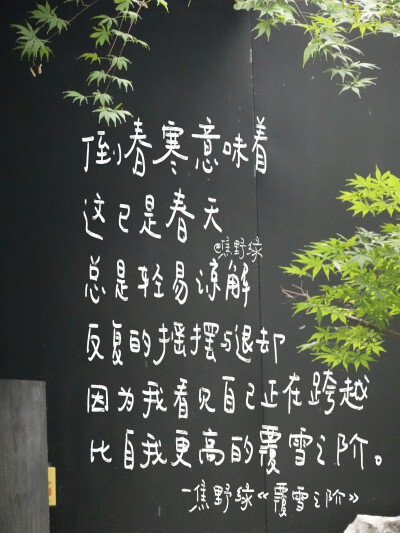 倒春寒意味着
这已是春天
@焦野绿
总是轻易谅解
反复的摇摆与退却
因为我看见自己正在跨越
比自我更高的覆雪之阶。
—焦野绿《覆雪之阶》